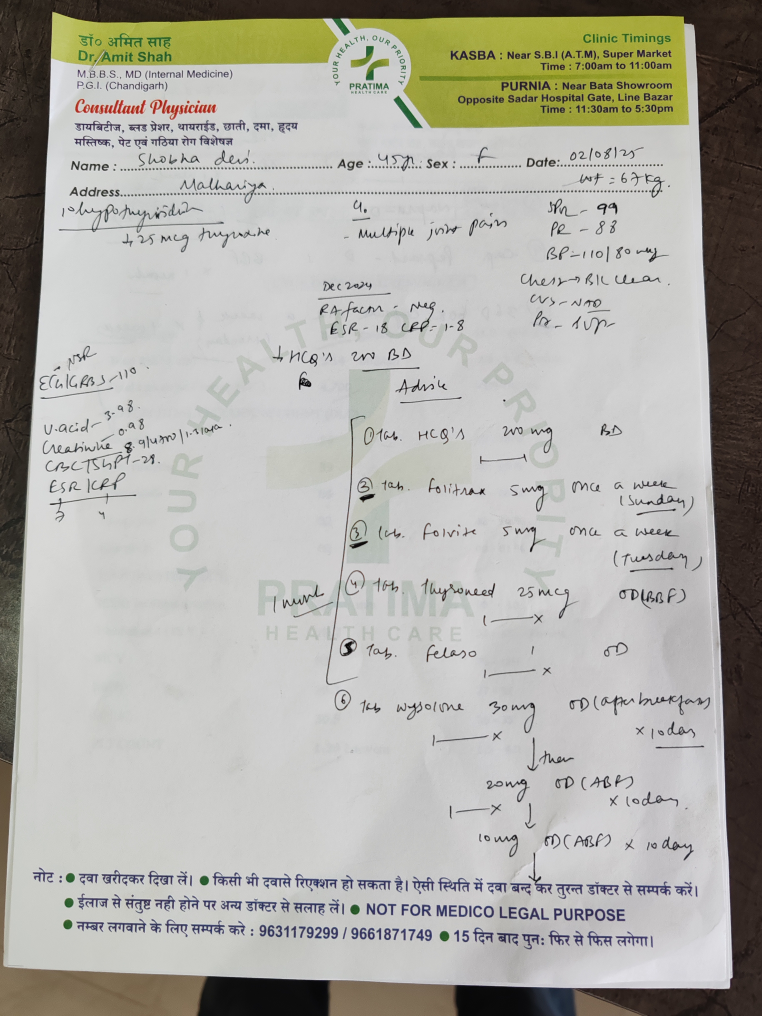 डॉ० अमित साह
Dr. Amit Shah
M.B.B.S., MD (Internal Medicine)
P.G.I. (Chandigarh)
Consultant Physician
डायबिटीज, ब्लड प्रेशर, थायराईड, छाती, दमा, हृदय
मस्तिष्क, पेट एवं गठिया रोग विशेषज्ञ
YOUR HEALTH, OUR PRIORITY
PRATIMA
HEALTH CARE
Clinic Timings
KASBA : Near S.B.I (A.T.M), Super Market
Time : 7:00am to 11:00am
PURNIA : Near Bata Showroom
Opposite Sadar Hospital Gate, Line Bazar
Time : 11:30am to 5:30pm
Name : Shobha devi. Age : 45yr. Sex : F Date: 02/08/25
Address Malhariya. wt = 67 kg.
hypothyroidism
↓ 25 mcg thyroxine
- Multiple joint pains
SPO2 - 99
PR - 88
BP - 110/80
Chest → B/L clear.
CVS - NAD
Dec 2024
RA factor - Neg.
ESR - 18 CRP - 1.8
↓ HCQ's 200 BD
NSR
ECG/GRBS - 110.
U.acid - 3.98.
Creatinine 0.98
CBC 8.9/
SGPT - 28.
ESR/CRP
Advice
① Tab. HCQ's 200 mg BD
② Tab. Folitrax 5mg once a week
(Sunday)
③ Tab. Folvite 5mg once a week
(Tuesday)
1 month
④ Tab. Thyroneed 25 mcg OD (BBF)
1—x
⑤ Tab. Felaso 1 OD
1—x
⑥ Tab Wysolone 30mg OD (after breakfast)
1—x x 10 days
↓ then
20mg OD (ABF)
1—x ↓ x 10 days.
10mg OD (ABF) x 10 days
↓
YOUR HEALTH, OUR PRIORITY
PRATIMA
HEALTH CARE
नोट : ● दवा खरीदकर दिखा लें। ● किसी भी दवासे रिएक्शन हो सकता है। ऐसी स्थिति में दवा बन्द कर तुरन्त डॉक्टर से सम्पर्क करें।
● ईलाज से संतुष्ट नही होने पर अन्य डॉक्टर से सलाह लें। ● NOT FOR MEDICO LEGAL PURPOSE
● नम्बर लगवाने के लिए सम्पर्क करे : 9631179299 / 9661871749 ● 15 दिन बाद पुन: फिर से फिस लगेगा।